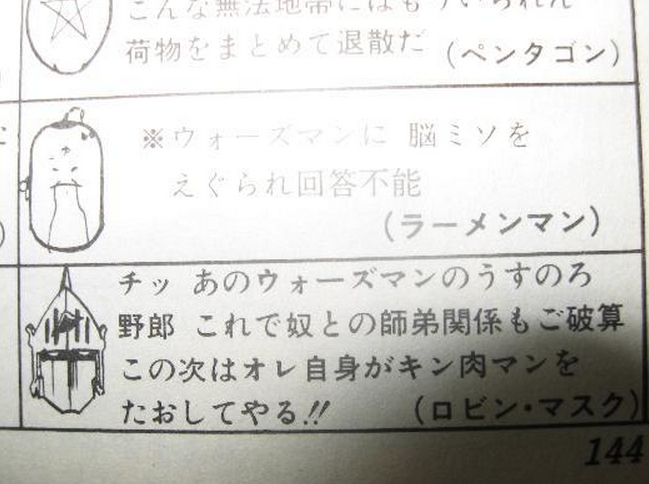 こんな無法地帯にはもういられん
荷物をまとめて退散だ (ペンタゴン)
※ウォーズマンに 脳ミソを
えぐられ回答不能
(ラーメンマン)
チッ あのウォーズマンのうすのろ
野郎 これで奴との師弟関係もご破算
この次はオレ自身がキン肉マンを
たおしてやる!! (ロビン・マスク)
144